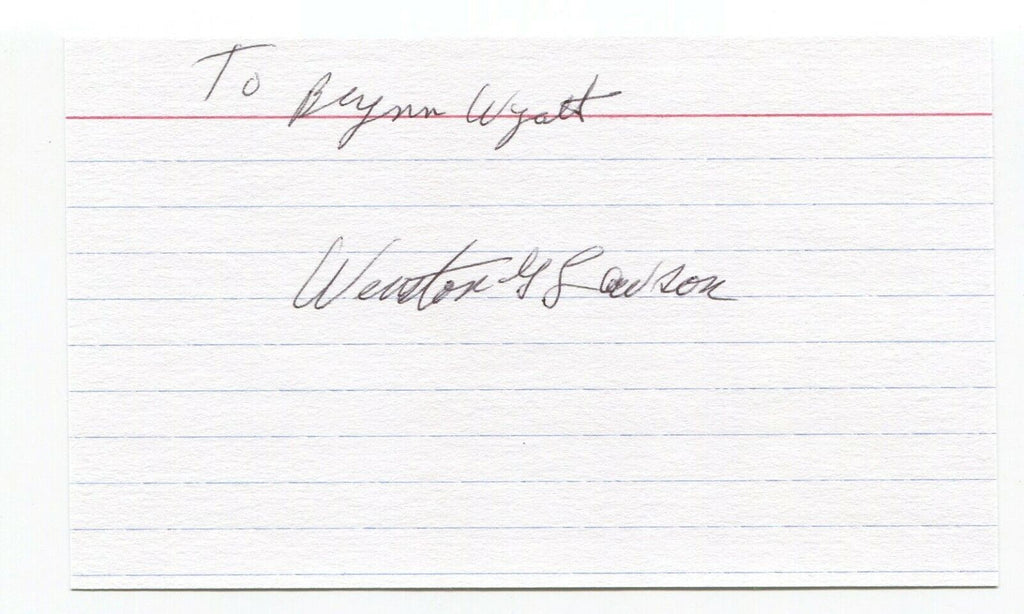 To Brynn Wyatt
Winston G Lawson